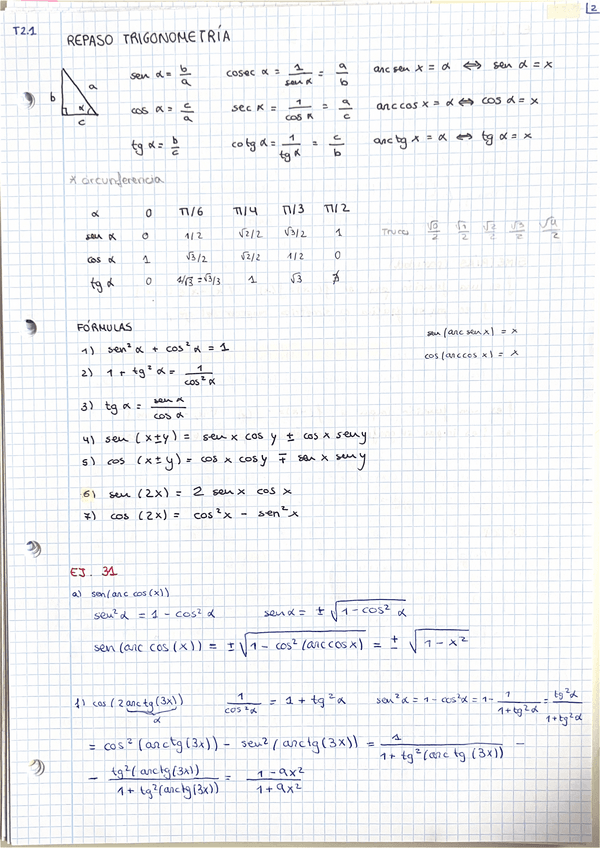 T2.1
2
REPASO TRIGONOMETRÍA
b a α c
sen α = b/a cosec α = 1/sen α = a/b arc sen x = α ⇔ sen α = x
cos α = c/a sec α = 1/cos α = a/c arc cos x = α ⇔ cos α = x
tg α = b/c cotg α = 1/tg α = c/b arc tg x = α ⇔ tg α = x
* circunferencia
α 0 π/6 π/4 π/3 π/2
sen α 0 1/2 √2/2 √3/2 1 Truco √0/2 √1/2 √2/2 √3/2 √4/2
cos α 1 √3/2 √2/2 1/2 0
tg α 0 1/√3 = √3/3 1 √3 ∄
FÓRMULAS
sen (arc sen x) = x
1) sen² α + cos² α = 1
cos (arc cos x) = x
2) 1 + tg² α = 1/cos² α
3) tg α = sen α/cos α
4) sen (x±y) = sen x cos y ± cos x sen y
5) cos (x±y) = cos x cos y ∓ sen x sen y
6) sen (2x) = 2 sen x cos x
7) cos (2x) = cos² x - sen² x
EJ. 31
a) sen (arc cos (x))
sen² α = 1 - cos² α sen α = ± √(1 - cos² α)
sen (arc cos (x)) = ± √(1 - cos² (arc cos x)) = ± √(1 - x²)
f) cos (2 arc tg (3x)) α 1/cos² α = 1 + tg² α sen² α = 1 - cos² α = 1 - 1/(1 + tg² α) = tg² α/(1 + tg² α)
= cos² (arc tg (3x)) - sen² (arc tg (3x)) = 1/(1 + tg² (arc tg (3x))) -
- tg² (arc tg (3x))/(1 + tg² (arc tg (3x))) = (1 - 9x²)/(1 + 9x²)